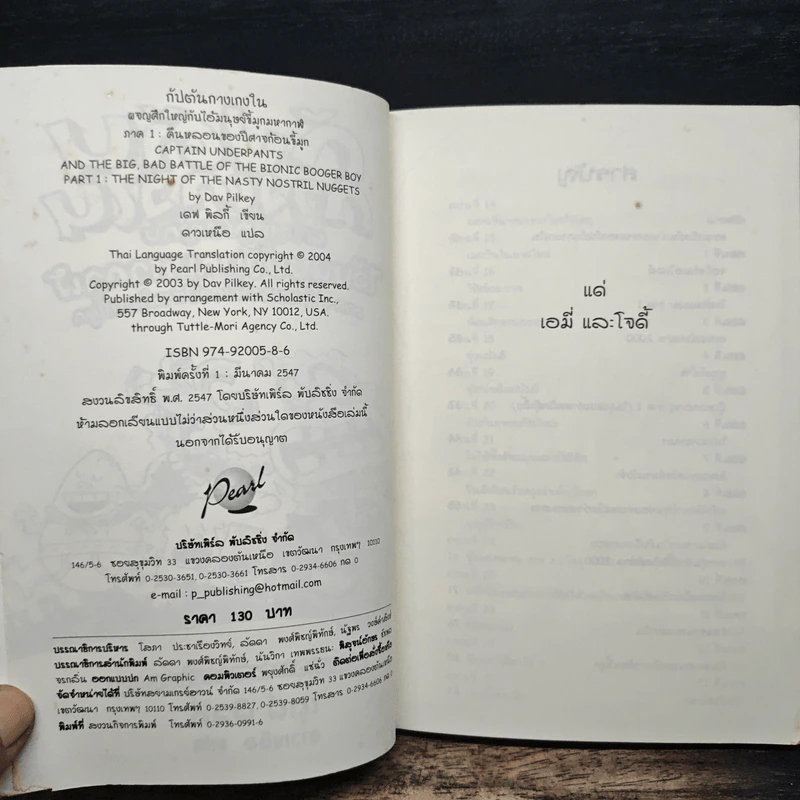 กัปตันกางเกงใน
ผจญศึกใหญ่กับไอ้มนุษย์ขี้มูกมหากาฬ
ภาค 1 : คืนหลอนของปีศาจก้อนขี้มูก
CAPTAIN UNDERPANTS
AND THE BIG, BAD BATTLE OF THE BIONIC BOOGER BOY
PART 1 : THE NIGHT OF THE NASTY NOSTRIL NUGGETS
by Dav Pilkey
เดฟ พิลกี้ เขียน
ดาวเหนือ แปล
Thai Language Translation copyright © 2004
by Pearl Publishing Co., Ltd.
Copyright © 2003 by Dav Pilkey. All rights reserved.
Published by arrangement with Scholastic Inc.,
557 Broadway, New York, NY 10012, USA.
through Tuttle-Mori Agency Co., Ltd.
ISBN 974-92005-8-6
พิมพ์ครั้งที่ 1 : มีนาคม 2547
สงวนลิขสิทธิ์ พ.ศ. 2547 โดยบริษัทเพิร์ล พับลิชชิ่ง จำกัด
ห้ามลอกเลียนแบบไม่ว่าส่วนหนึ่งส่วนใดของหนังสือเล่มนี้
นอกจากได้รับอนุญาต
Pearl
บริษัทเพิร์ล พับลิชชิ่ง จำกัด
146/5-6 ซอยสุขุมวิท 33 แขวงคลองตันเหนือ เขตวัฒนา กรุงเทพฯ 10110
โทรศัพท์ 0-2530-3651, 0-2530-3661 โทรสาร 0-2934-6606 กด 0
e-mail : p_publishing@hotmail.com
ราคา 130 บาท
บรรณาธิการบริหาร โสภา ประชาเรืองวิทย์, ลัดดา พงศ์พิชญ์พิทักษ์, นัฐพร
บรรณาธิการสำนักพิมพ์ ลัดดา พงศ์พิชญ์พิทักษ์, นันวิภา เทพพรรธนะ พิสูจน์อักษร
จรกลิ่น ออกแบบปก Am Graphic คอมพิวเตอร์ พยุงศักดิ์ แซ่ฉั่ว ติดต่อเพื่อสั่งซื้อหรือ
จัดจำหน่ายได้ที่ บริษัทสยามเกรย์ฮาวน์ จำกัด 146/5-6 ซอยสุขุมวิท 33 แขวงคลองตันเหนือ
เขตวัฒนา กรุงเทพฯ 10110 โทรศัพท์ 0-2539-8827, 0-2539-8059 โทรสาร 0-2934-6606 กด 0
พิมพ์ที่ สงวนกิจการพิมพ์ โทรศัพท์ 0-2936-0991-6
แด่
เอมี่ และโจดี้